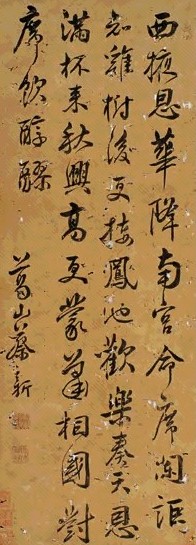 西掖恩華降南宮命席闌詎
知雞樹後更接鳳池歡樂奏天恩
滿杯來秋興高更蒙蕭相國對
席飲醇醪
葛山蔡新